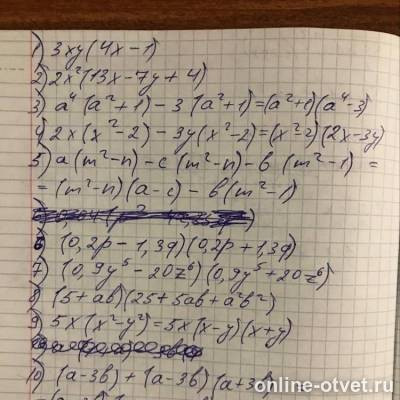 1) 3xy(4x-1)
2) 2x²(13x-7y+4)
3) a⁴(a²+1)-3(a²+1)=(a²+1)(a⁴-3)
4) 2x(x²-2)-3y(x²-2)=(x²-2)(2x-3y)
5) a(m²-n)-c(m²-n)-b(m²-1)=
=(m²-n)(a-c)-b(m²-1)
6) (0,2p-1,3q)(0,2p+1,3q)
7) (0,9y⁵-20z⁶)(0,9y⁵+20z⁶)
8) (5+ab)(25+5ab+a²b²)
9) 5x(x²-y²)=5x(x-y)(x+y)
10) (a-3b)+(a-3b)(a+3b)
online-otvet.ru